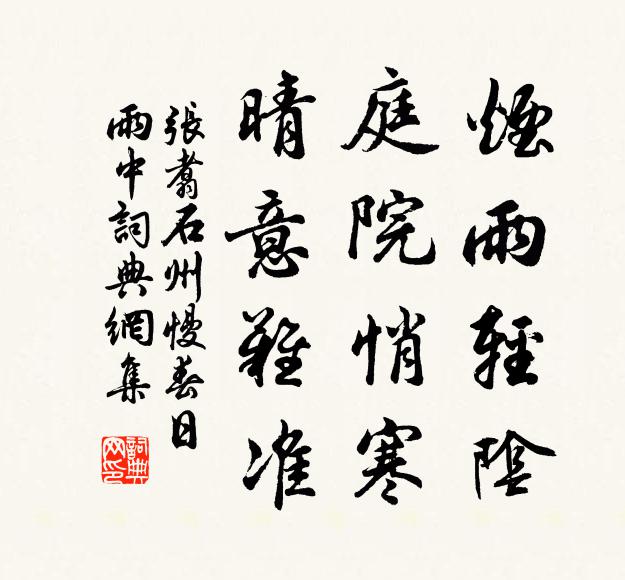 煙雨輕陰
庭院悄寒
晴意難准
張翥石州慢春日
雨中詞典網集
詞典
网印